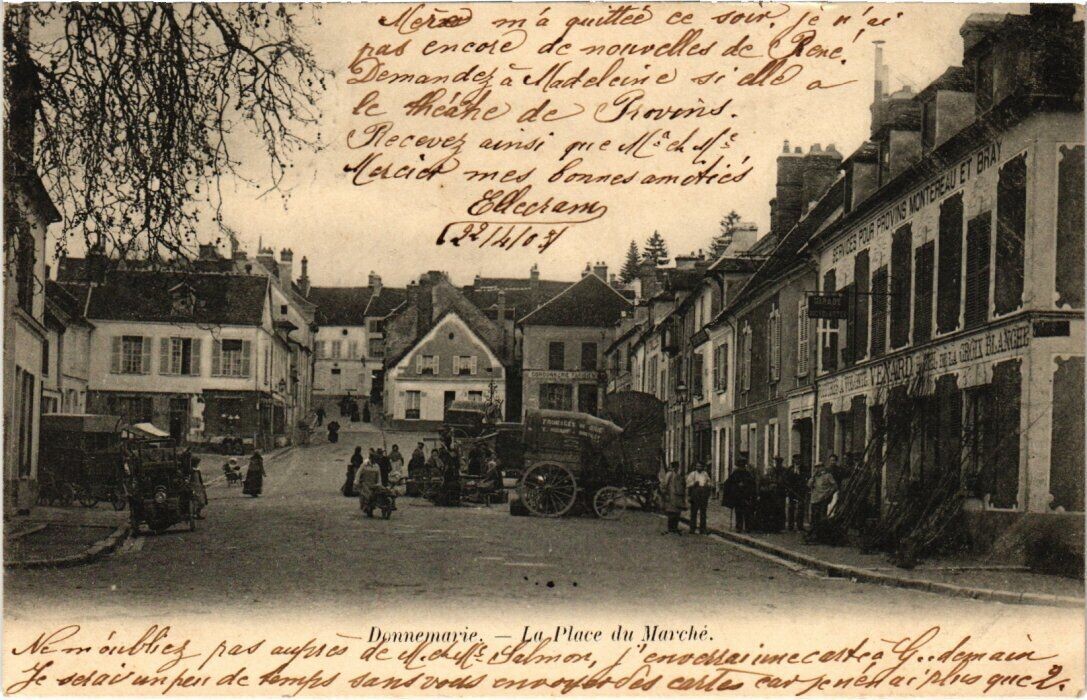 Mère m'a quittée ce soir. Je n'ai
pas encore de nouvelles de René.
Demandez à Madeleine si elle a
le théâtre de Provins.
Recevez ainsi que Mr et Me
Mercier mes bonnes amitiés
(22/4/03)
SERVICES POUR PROVINS MONTEREAU ET BRAY
GARAGE
CORDONNERIE
FROMAGES DE BRIE
VEYARD HÔTEL DE LA CROIX BLANCHE
Donnemarie. — La Place du Marché.
Ne m'oubliez pas auprès de M. et Me Salmon, j'enverrai une carte à G.. demain
Je serai un peu de temps sans vous envoyer des cartes car je n'en ai plus que 2.